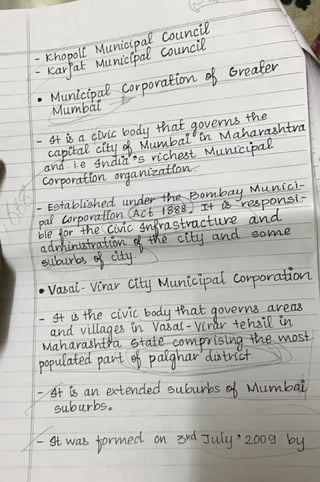 - Khopoli Municipal Council
- Karjat Municipal Council
• Municipal Corporation of Greater
Mumbai
- It is a civic body that governs the
capital city of Mumbai in Maharashtra
and i.e India's richest Municipal
Corporation organization.
- Established under the Bombay Munici-
pal Corporation (Act 1888) It is responsi-
ble for the Civic Infrastracture and
administration of the city and some
suburbs of city
• Vasai-Virar City Municipal Corporation
- It is the civic body that governs areas
and villages in Vasai-Virar tehsil in
Maharashtra State comprising the most
populated part of palghar district
- It is an extended suburbs of Mumbai
suburbs.
- It was formed on 3rd July '2009 by